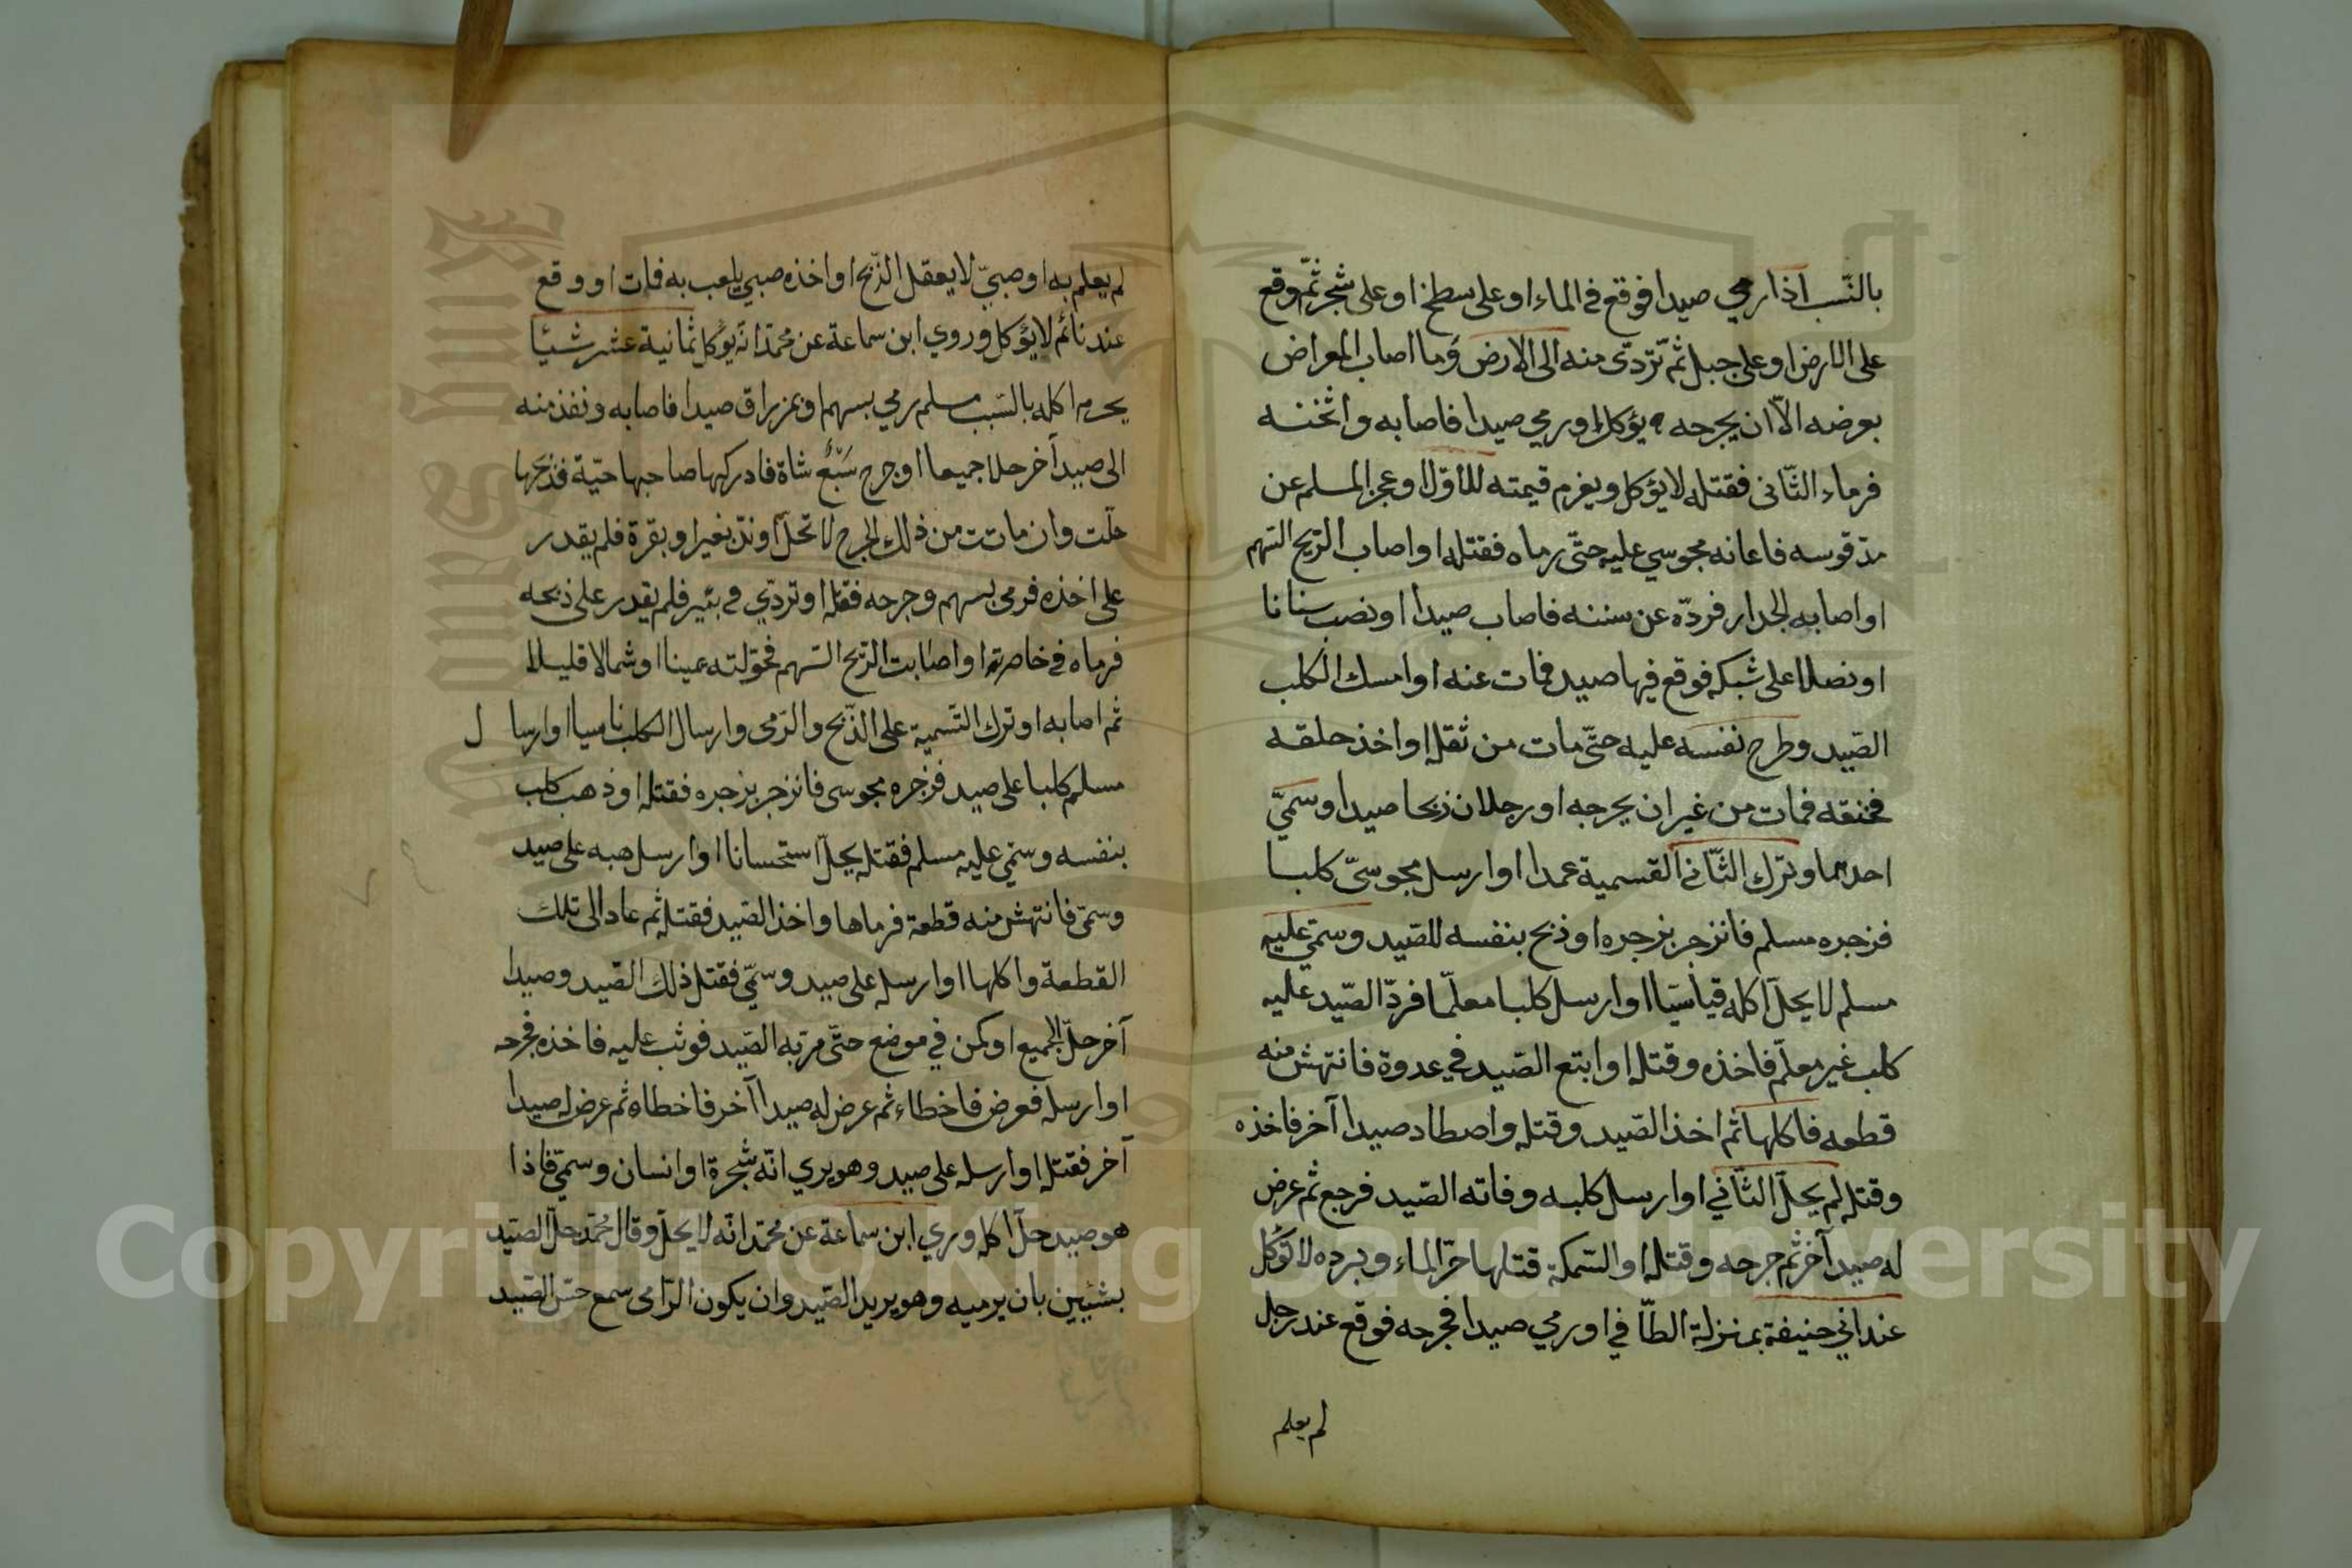 بالنّسب اذا رمي صيدا فوقع في الماء او على سطح او على شجر ثمّ وقع
على الارض او على جبل ثمّ تردّى منه الى الارض وما اصاب المعراض
بعرضه الاّ ان يجرحه يؤكل او رمي صيدا فاصابه واثخنه
فرماء الثّانى فقتله لا يؤكل ويغرم قيمته للاوّل او عجز المسلم عن
مدّ قوسه فاعانه مجوسي عليه حتّى رماه فقتله او اصاب الرّيح السّهم
او اصابه الجدار فردّه عن سننه فاصاب صيدا او نصب سنانا
او نصلا على شبكه فوقع فيها صيد فمات عنه او امسك الكلب
الصّيد وطرح نفسه عليه حتّى مات من ثقله او اخذ حلقه
فخنقه فمات من غير ان يجرحه او رجلان ذبحا صيدا وسمّي
احدهما وترك الثّاني القسمية عمدا او ارسل مجوسيّ كلبا
فزجره مسلم فانزجر بزجره او ذبح بنفسه للصّيد وسمّي عليه
مسلم لا يحلّ اكله قياسيّا او ارسل كلبا معلّما فردّ الصّيد عليه
كلب غير معلّم فاخذه وقتله او ابتع الصّيد في عدوة فانتهش منه
قطعه فاكلها ثم اخذ الصّيد وقتله واصطاد صيدا آخر فاخذه
وقتله لم يحلّ الثّاني او ارسل كلبه وفاته الصّيد فرجع ثم عرض
له صيد آخر ثم جرحه وقتله او السّمكة قتلها حرّ الماء وبرده لا تؤكل
عند ابي حنيفة بمنزلة الطّافي او رمي صيدا فجرحه فوقع عند رجل
لم يعلم
لم يعلم به او صبيّ لا يعقل الذّبح او اخذه صبي يلعب به فمات او وقع
عند نائم لا يؤكل وروي ابن سماعة عن محمّد انّه يؤكل ثمانية عشر شيئا
يحرم اكله بالسّبب مسلم رمي بسهم او بمزراق صيدا فاصابه ونفذ منه
الى صيد آخر حلا جميعا او جرح سَبُعٌ شاة فادركها صاحبها حيّة فذبحها
حلّت وان ماتت من ذلك الجرح لا تحلّ او ندّ بغير او بقرة فلم يقدر
على اخذه فرمى بسهم وجرحه فقتله او تردّي في بئير فلم يقدر على ذبحه
فرماه في خاصرته او اصابت الرّيح السّهم فحوّلته يمينا او شمالا قليلا
ثم اصابه او ترك التّسمية على الذّبح والرّمى وارسال الكلب ناسيا او ارسا ل
مسلم كلبا على صيد فزجره مجوسى فانزجر بزجره فقتله او ذهب كلب
بنفسه وسمّي عليه مسلم فقتله يحلّ استحسانا او ارسل صبه على صيد
وسمّى فانتهش منه قطعة فرماها واخذ الصّيد فقتله ثم عاد الى تلك
القطعة واكلها او ارسله على صيد وسمّي فقتل ذلك الصّيد وصيدا
آخر حلّ الجميع او كمن في موضع حتّى مرّ به الصّيد فوثب عليه فاخذه فجرحه
او ارسله فعرض فاخطاء ثم عرض له صيدا آخر فاخطاه ثم عرض له صيدا
آخر فقتله او ارسله على صيد وهو يري انّه شجرة او انسان وسمّى فاذا
هو صيد حلّ اكله وري ابن سماعة عن محمّد انّه لا يحلّ وقال محمّد حلّ الصّيد
بشيئين بان يرميه وهو يريد الصّيد وان يكون الرّامى سمع حسّ الصّيد
Copyright © King Saud University